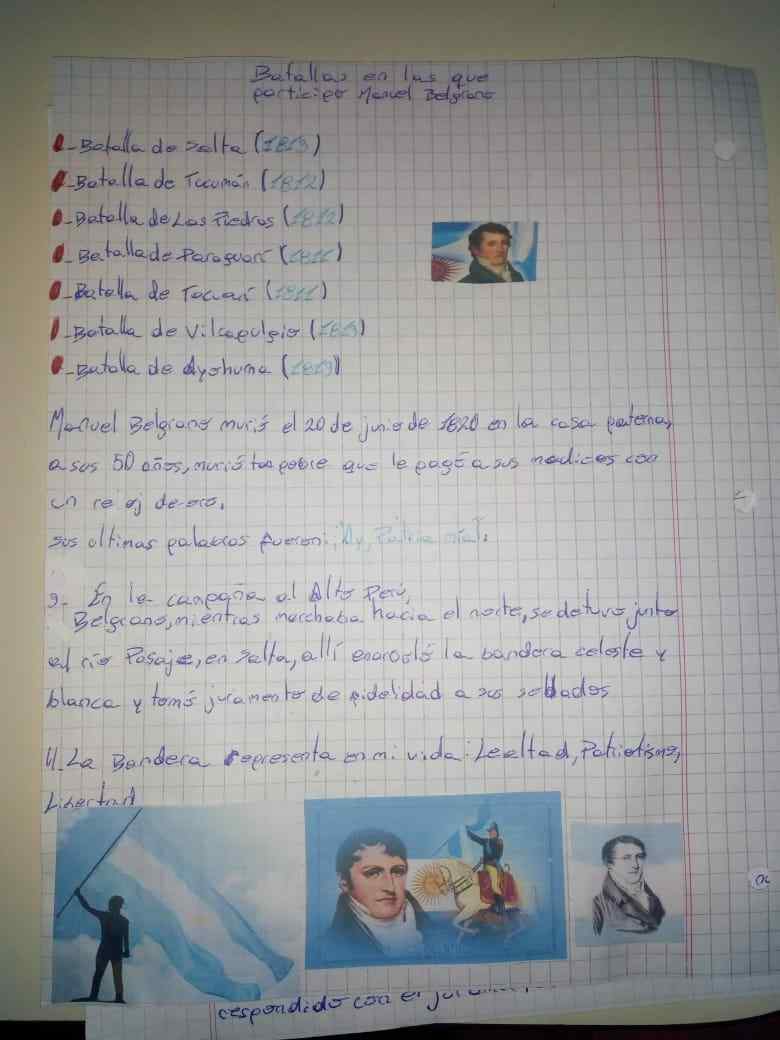 Batallas en las que
participo Manuel Belgrano
- Batalla de Salta (1813)
- Batalla de Tucumán (1812)
- Batalla de Las Piedras (1812)
- Batalla de Paraguarí (1811)
- Batalla de Tacuarí (1811)
- Batalla de Vilcapulgio (1813)
- Batalla de Ayohuma (1813)
Manuel Belgrano murió el 20 de junio de 1820 en la casa paterna,
a sus 50 años, murió tan pobre que le pagó a sus medicos con
un reloj de oro.
sus ultimas palabras fueron: "Ay, Patria mía".
En la campaña al Alto Perú,
Belgrano, mientras marchaba hacia el norte, se detuvo junto
al río Pasaje, en Salta, allí enarboló la bandera celeste y
blanca y tomó juramento de fidelidad a sus soldados
4. La Bandera representa en mi vida: Lealtad, Patriotismo,
Libertad
respondido con el